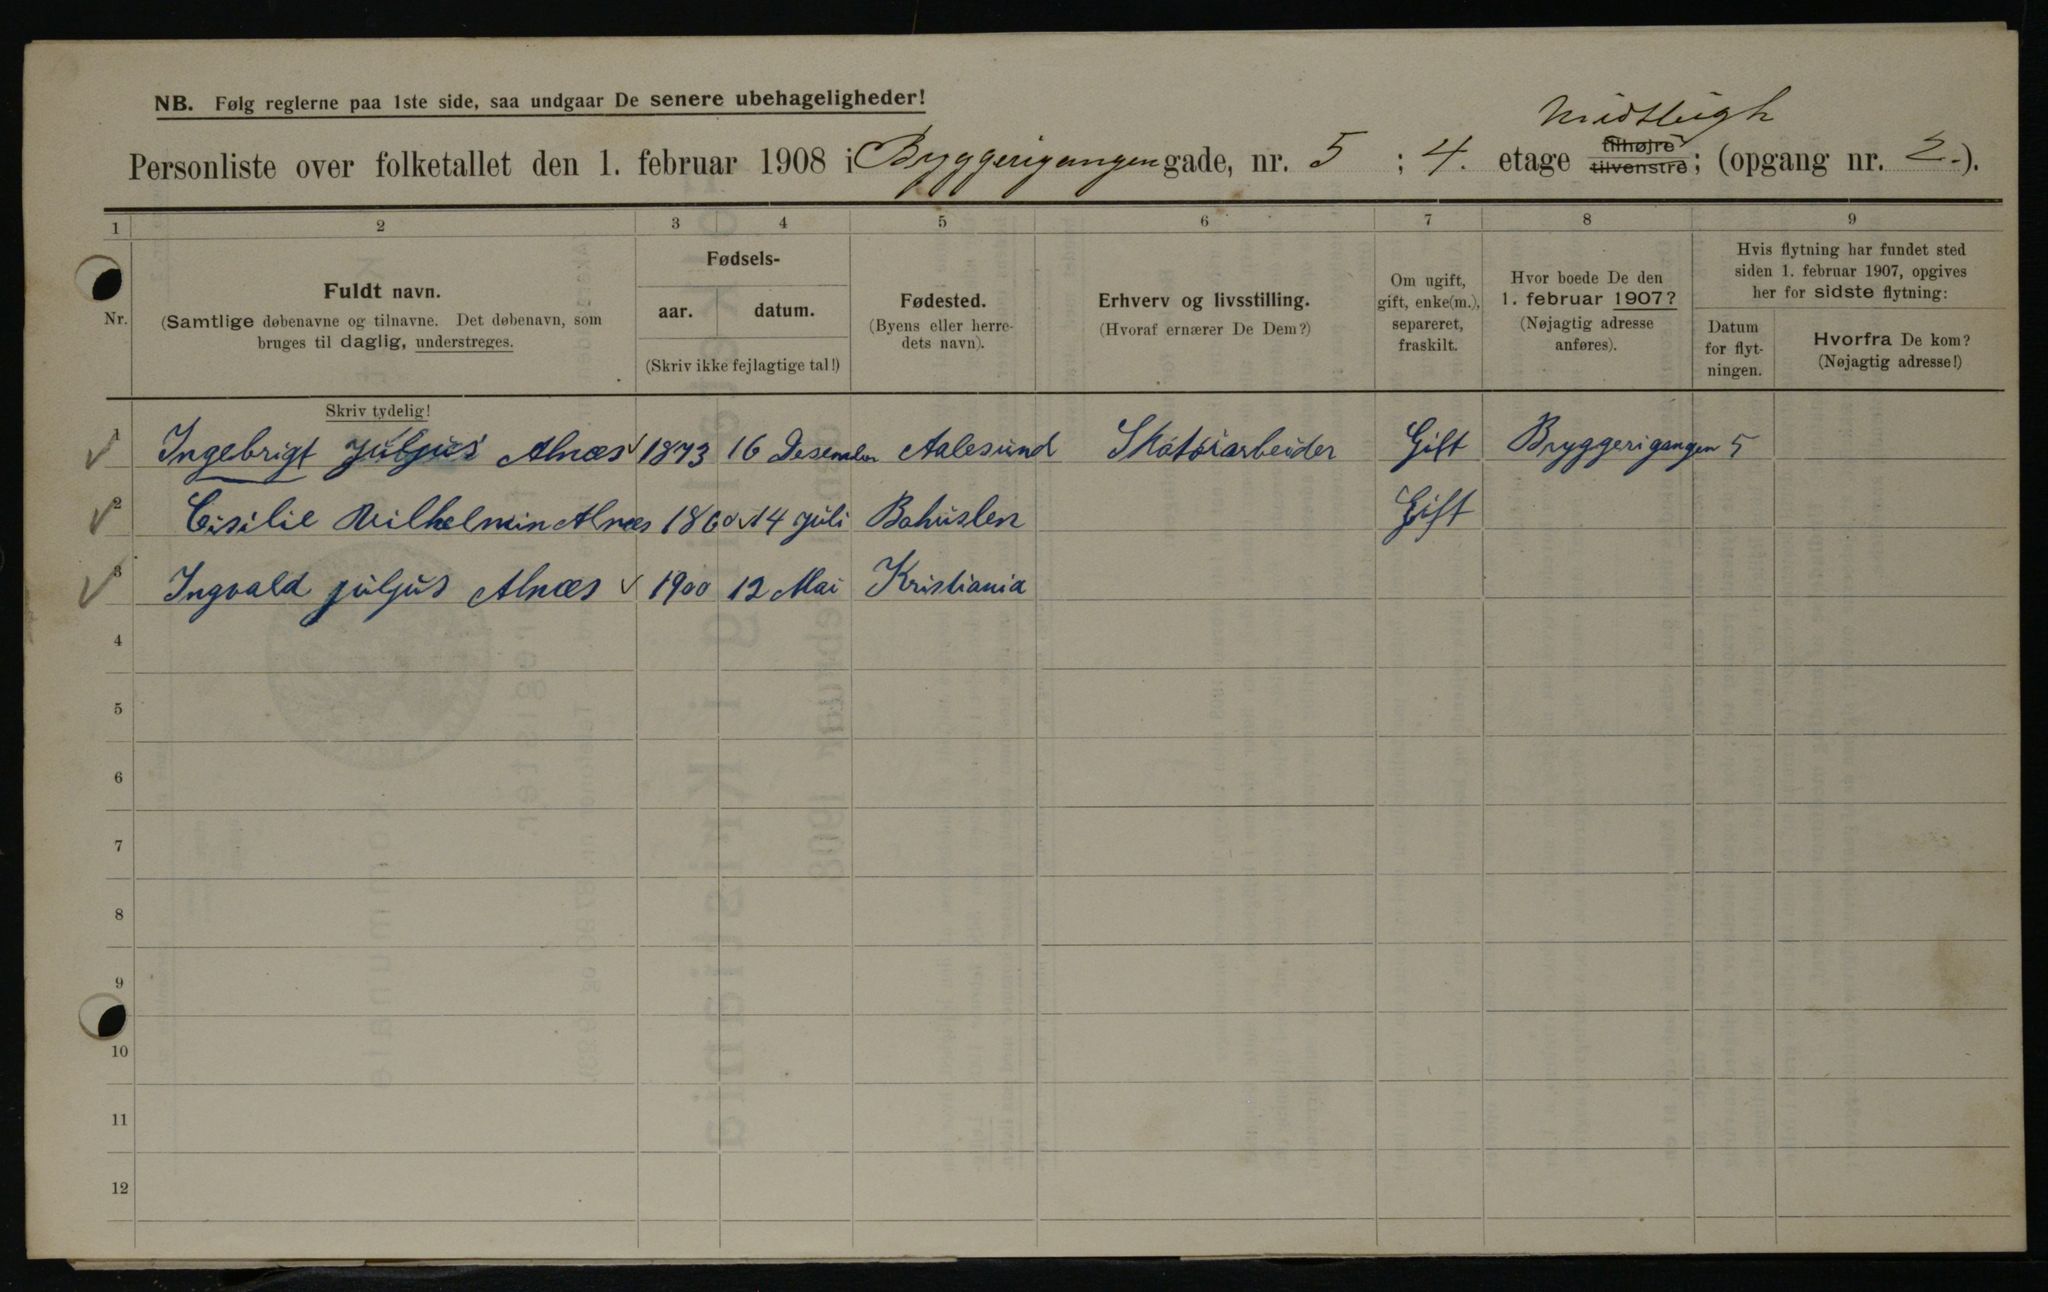 NB. Følg reglerne paa 1ste side, saa undgaar De senere ubehageligheder!
Midtleigh
Personliste over folketallet den 1. februar 1908 i Bryggerigangen gade, nr. 5 ; 4. etage tilhøjre tilvenstre; (opgang nr. 2.).
1 2 3 4 5 6 7 8 9
Nr.
Fuldt navn.
(Samtlige døbenavne og tilnavne. Det døbenavn, som
bruges til daglig, understreges.
Fødsels-
aar. datum.
(Skriv ikke fejlagtige tal!)
Fødested.
(Byens eller herre-
dets navn).
Erhverv og livsstilling.
(Hvoraf ernærer De Dem?)
Om ugift,
gift, enke(m.),
separeret,
fraskilt.
Hvor boede De den
1. februar 1907?
(Nøjagtig adresse
anføres).
Hvis flytning har fundet sted
siden 1. februar 1907, opgives
her for sidste flytning:
Datum
for flyt-
ningen.
Hvorfra De kom?
(Nøjagtig adresse!)
Skriv tydelig!
1 Ingebrigt Juljus Alnæs 1873 16 Desember Aalesund Skotøiarbeider Gift Bryggerigangen 5
2 Cisilie Vilhelmin Alnæs 1860 14 juli Bohuslen Gift
3 Ingvald juljus Alnæs 1900 12 Mai Kristiania
4
5
6
7
8
9
10
11
12